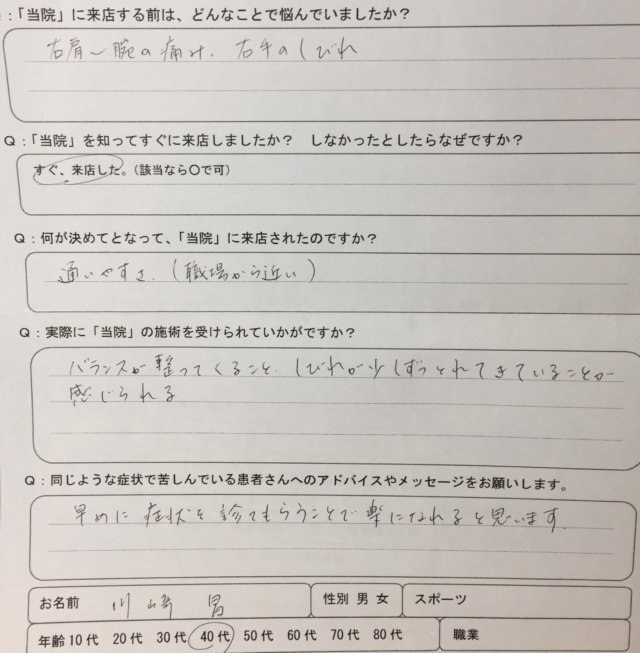 :「当院」に来店する前は、どんなことで悩んでいましたか？
右肩～腕の痛み. 右手のしびれ
Q：「当院」を知ってすぐに来店しましたか？　しなかったとしたらなぜですか？
すぐ、来店した。（該当なら〇で可）
Q：何が決めてとなって、「当院」に来店されたのですか？
通いやすさ.（職場から近い）
Q：実際に「当院」の施術を受けられていかがですか？
バランスが整ってくること. しびれが少しずつとれてきていることが
感じられる
Q：同じような症状で苦しんでいる患者さんへのアドバイスやメッセージをお願いします。
早めに症状を診てもらうことで楽になれると思います.
お名前 川崎 性別 男 女 スポーツ
年齢 10代 20代 30代 40代 50代 60代 70代 80代 職業